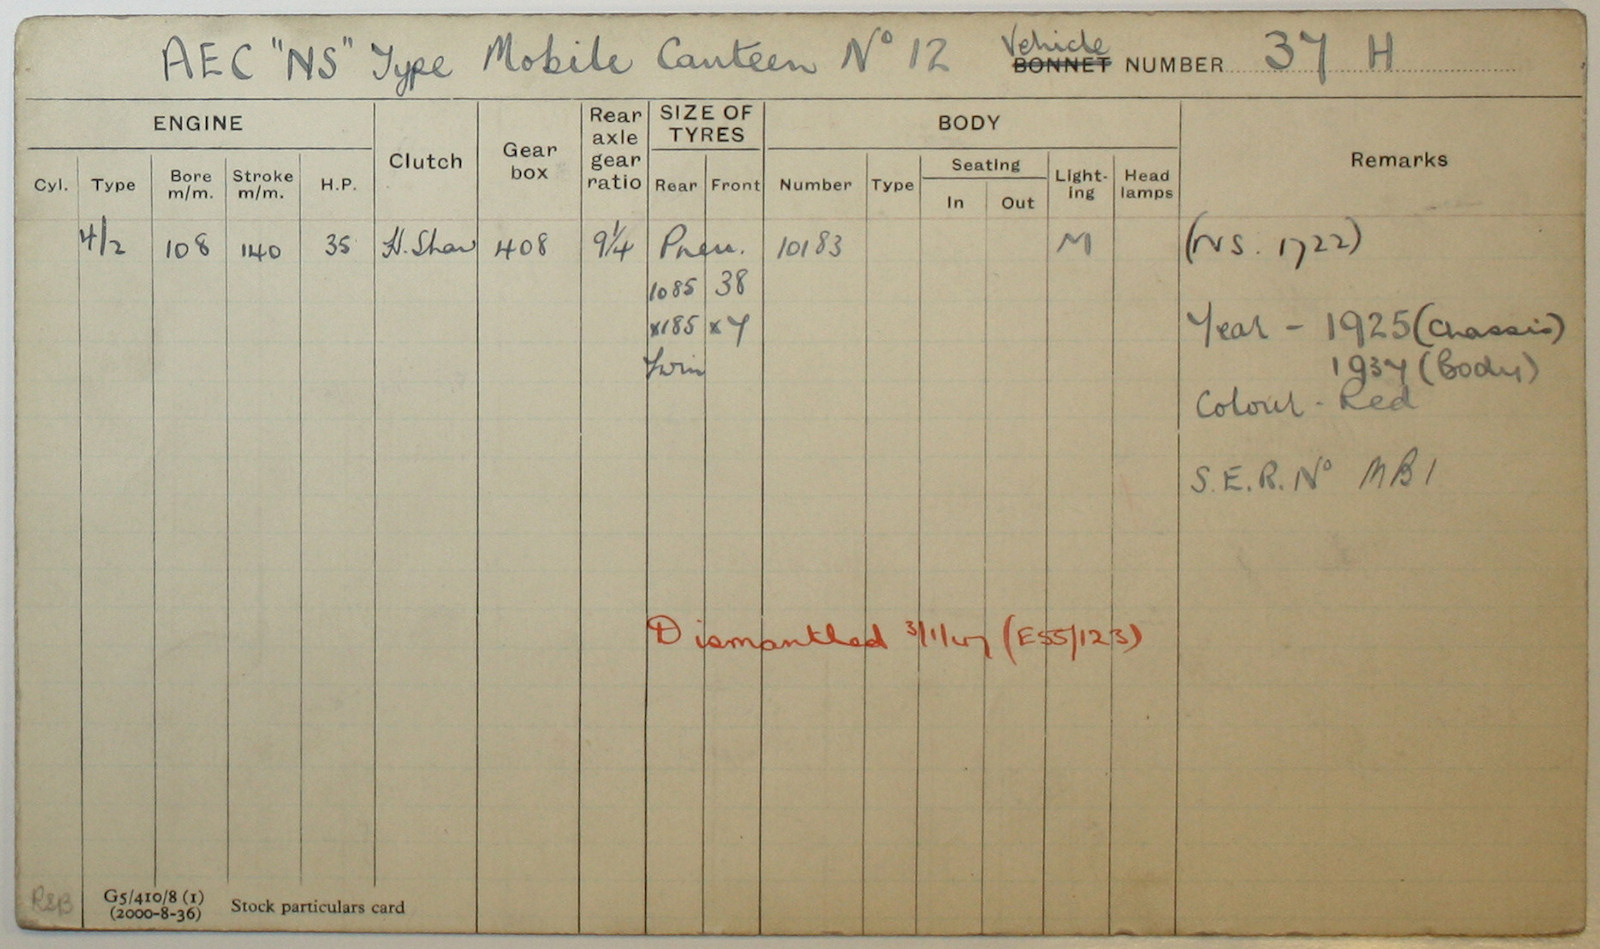 AEC "NS" Type Mobile Canteen Nº 12 Vehicle BONNET NUMBER 37 H
ENGINE
Clutch
Gear box
Rear axle gear ratio
SIZE OF TYRES
BODY
Remarks
Cyl. Type Bore m/m. Stroke m/m. H.P. Rear Front Number Type Seating In Out Light-ing Head lamps
4/2 108 140 35 H.Shaw 408 9¼ Pneu. 10183 M (NS. 1722)
1085 38
x185 x7 Year - 1925 (Chassis)
Twin 1937 (Body)
Colour - Red
S.E.R. Nº MB1
Dismantled 3/1/47 (E55/123)
R&B
G5/410/8 (1)
(2000-8-36) Stock particulars card